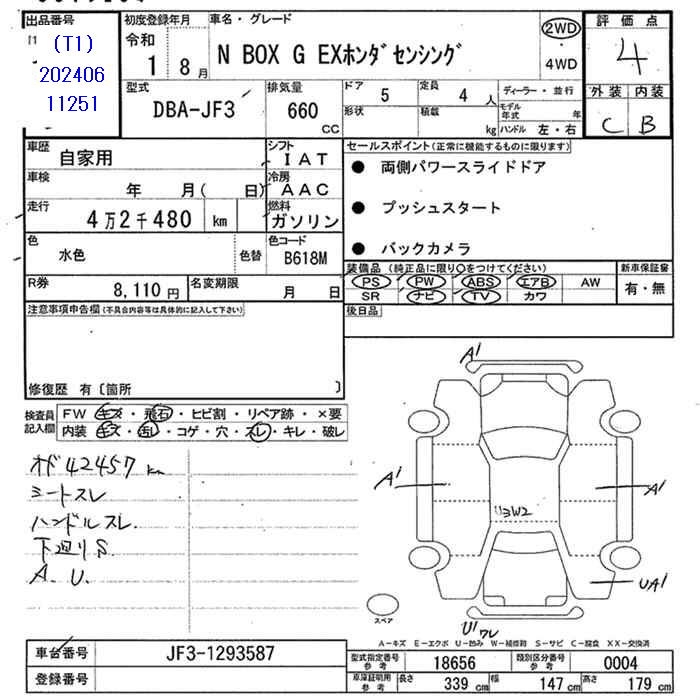 出品番号
(T1)
202406
11251
初度登録年月
令和
1 8月
車名・グレード
N BOX G EXホンダセンシング
2WD
・
4WD
評価点
4
外装 内装
C B
型式
DBA-JF3
排気量
660
CC
ドア 5 定員 4 人
形状 積載 kg
ディーラー・並行
モデル年式 年式
ハンドル 左・右
車歴
自家用
シフト
IAT
車検 年 月( 日)
冷房
AAC
走行
4万2千480 km
燃料
ガソリン
色
水色
色替
色コード
B618M
R券
8,110 円
名変期限 月 日
セールスポイント(正常に機能するものに限ります)
● 両側パワースライドドア
● プッシュスタート
● バックカメラ
装備品 (純正品に限り○をつけてください)
PS PW ABS エアB AW
SR ナビ TV カワ
新車保証書
有・無
後日品
注意事項申告欄(不具合内容等は具体的に記入して下さい)
修復歴 有〔箇所 〕
検査員記入欄
FW キズ・飛石・ヒビ割・リペア跡・×要
内装 キズ・汚レ・コゲ・穴・スレ・キレ・破レ
オド42457 km
シートスレ
ハンドルスレ
下廻りS
A. U.
A1
A1
A1
U3W2
UA1
U1ワレ
スペア
A-キズ E-エクボ U-凹み W-補修跡 S-サビ C-腐食 XX-交換済
車台番号
JF3-1293587
登録番号
型式指定番号 参考
18656
類別区分番号 参考
0004
車庫証明用 参考
長さ 339 cm 幅 147 cm 高さ 179 cm